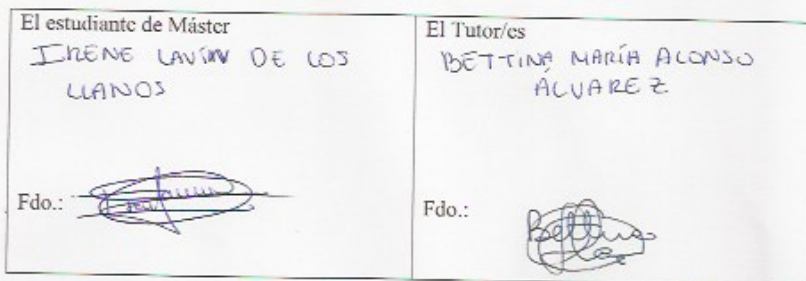 El estudiante de Máster
IRENE LAVÍN DE LOS
LLANOS
Fdo.:
El Tutor/es
BETTINA MARÍA ALONSO
ÁLVAREZ
Fdo.:
Bettina